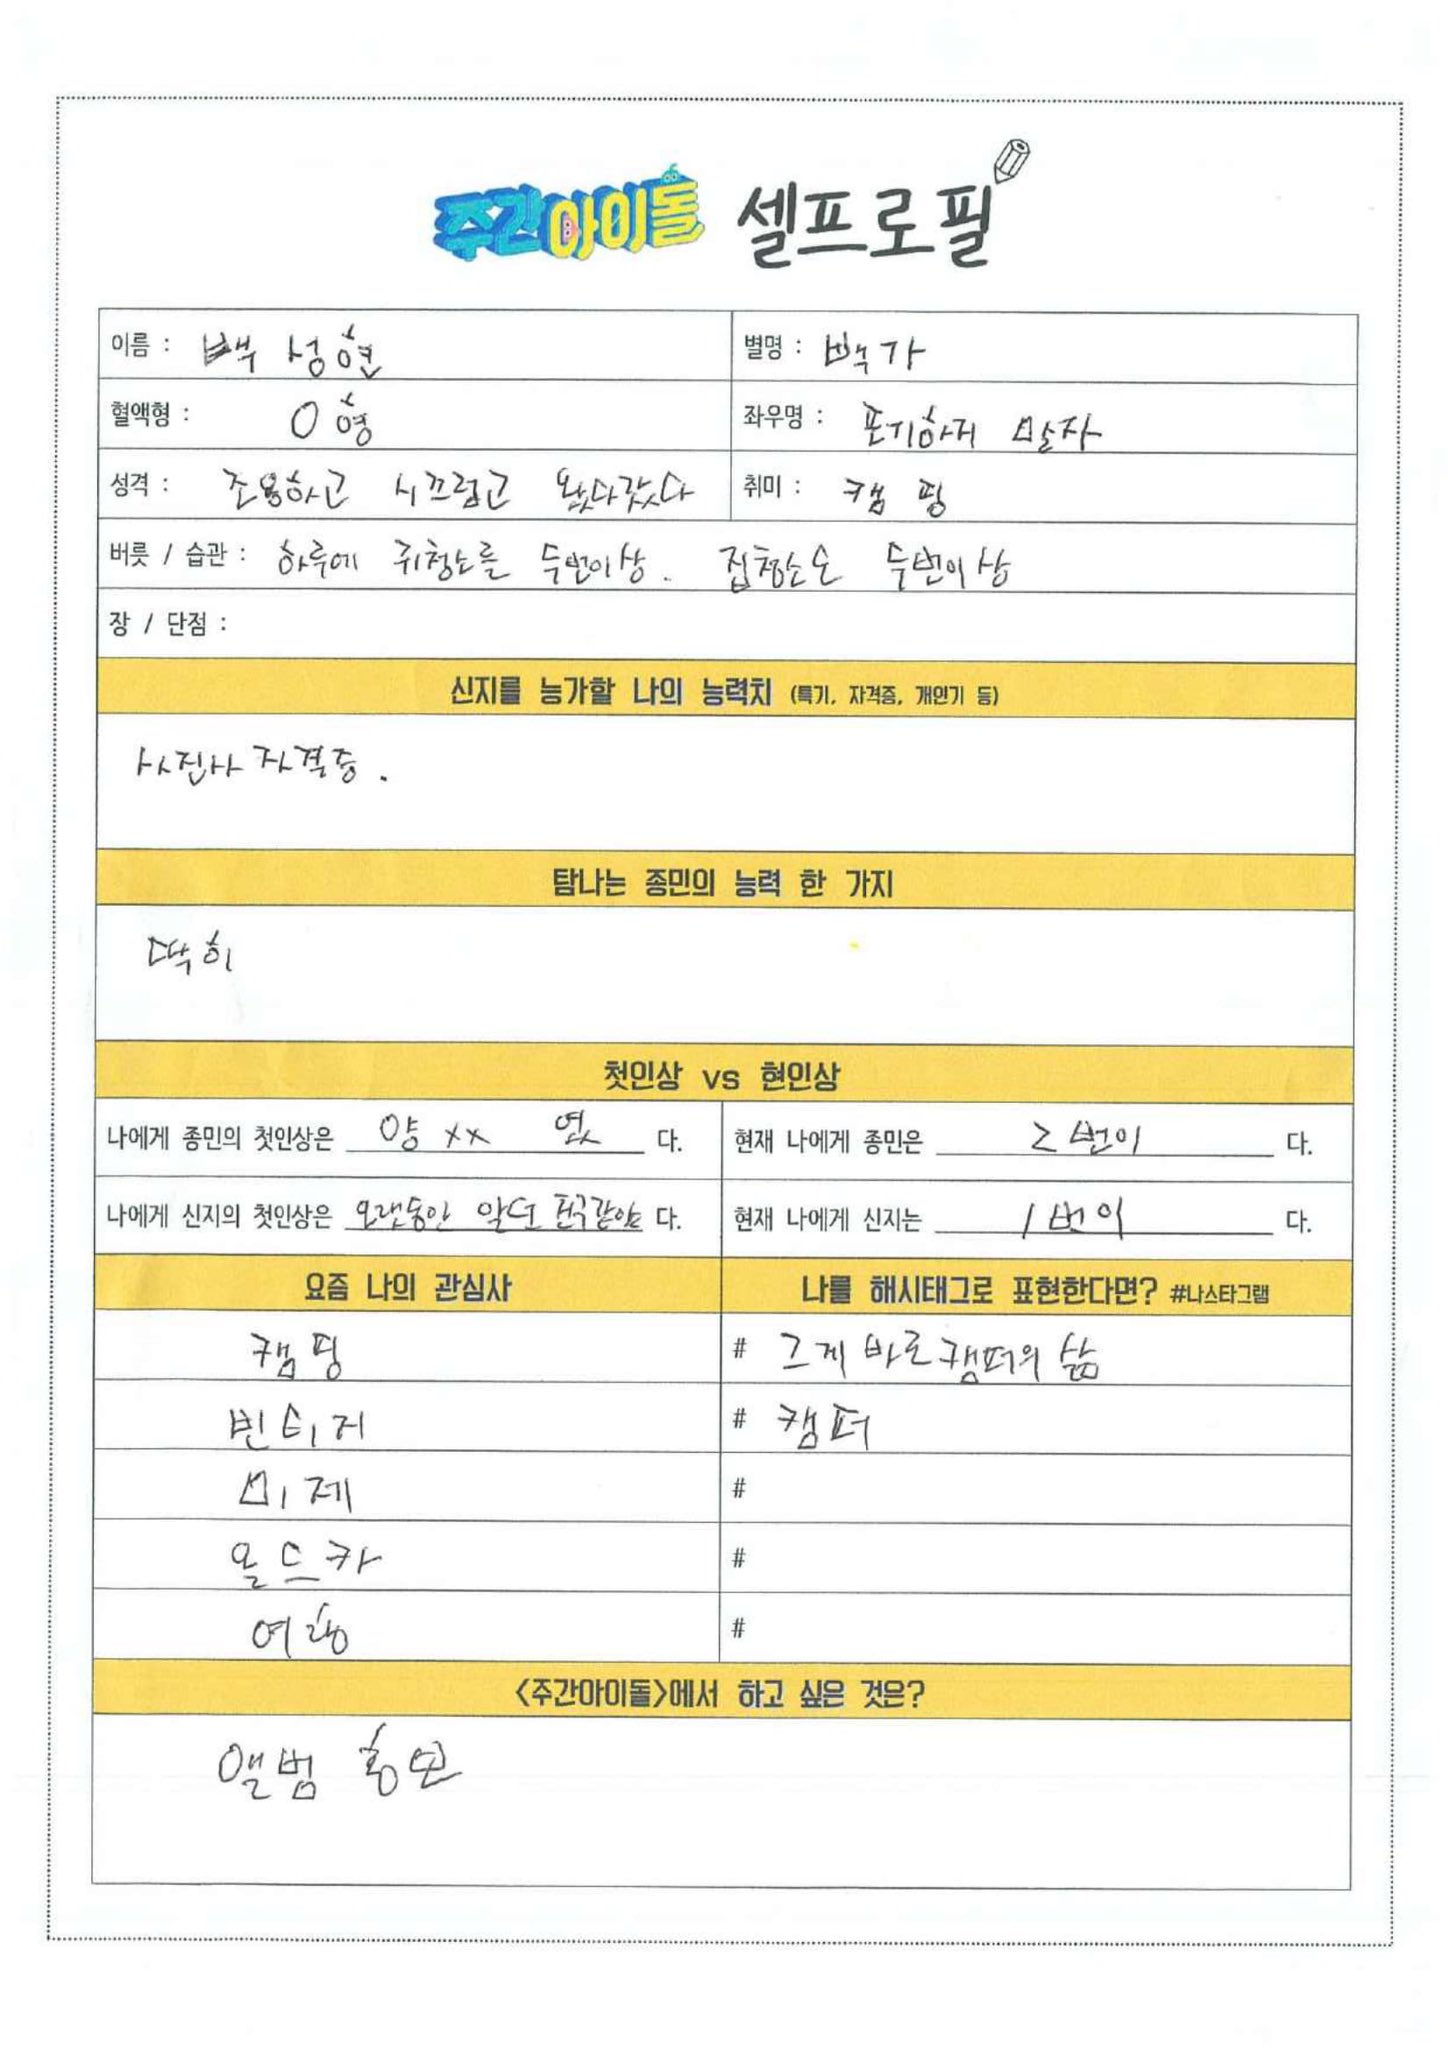 주간아이돌 셀프로필
이름 : 백성현
별명 : 빽가
혈액형 : O형
좌우명 : 포기하지 말자
성격 : 조용하고 시끄럽고 왔다갔다
취미 : 캠핑
버릇 / 습관 : 하루에 귀청소를 두번이상. 집청소도 두번이상
장 / 단점 :
신지를 능가할 나의 능력치 (특기, 자격증, 개인기 등)
사진사 자격증.
탐나는 종민의 능력 한 가지
딱히
첫인상 vs 현인상
나에게 종민의 첫인상은 양xx 였 다.
현재 나에게 종민은 2번이 다.
나에게 신지의 첫인상은 오랫동안 알던 친구같았 다.
현재 나에게 신지는 1번이 다.
요즘 나의 관심사
나를 해시태그로 표현한다면? #나스타그램
캠핑
# 그게 바로 캠퍼의 삶
빈티지
# 캠퍼
미제
#
올드카
#
여행
#
<주간아이돌>에서 하고 싶은 것은?
앨범 홍보